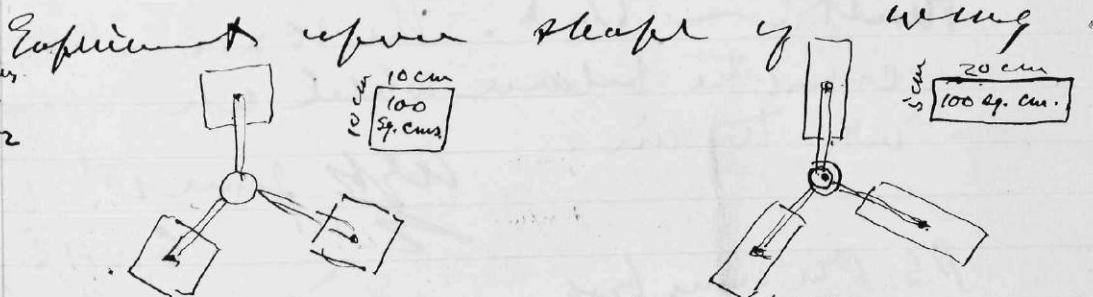 Experiment upon shape of wing
10 cm
10 cm
100
Sq. cms.
20 cm
5 cm
100 sq. cm.
2